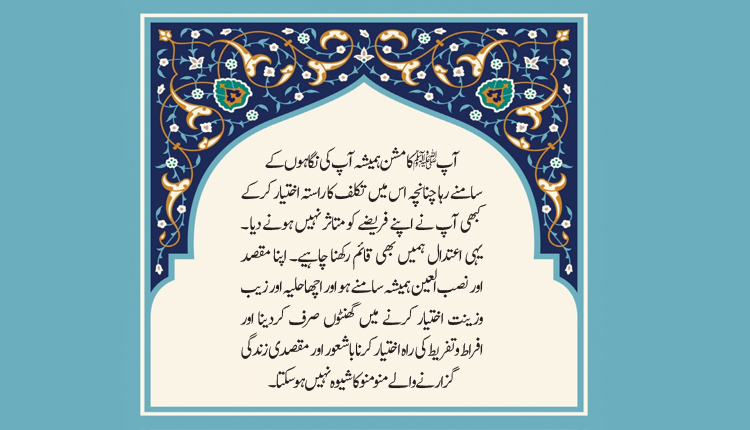 آپ ﷺ کا مشن ہمیشہ آپ کی نگاہوں کے
سامنے رہا چنانچہ اس میں تکلف کا راستہ اختیار کرکے
کبھی آپ نے اپنے فریضے کو متاثر نہیں ہونے دیا۔
یہی اعتدال ہمیں بھی قائم رکھنا چاہیے۔ اپنا مقصد
اور نصب العین ہمیشہ سامنے ہو اور اچھا حلیہ اور زیب
وزینت اختیار کرنے میں گھنٹوں صرف کردینا اور
افراط و تفریط کی راہ اختیار کرنا باشعور اور مقصدی زندگی
گزارنے والے منو منو کا شیوہ نہیں ہوسکتا۔